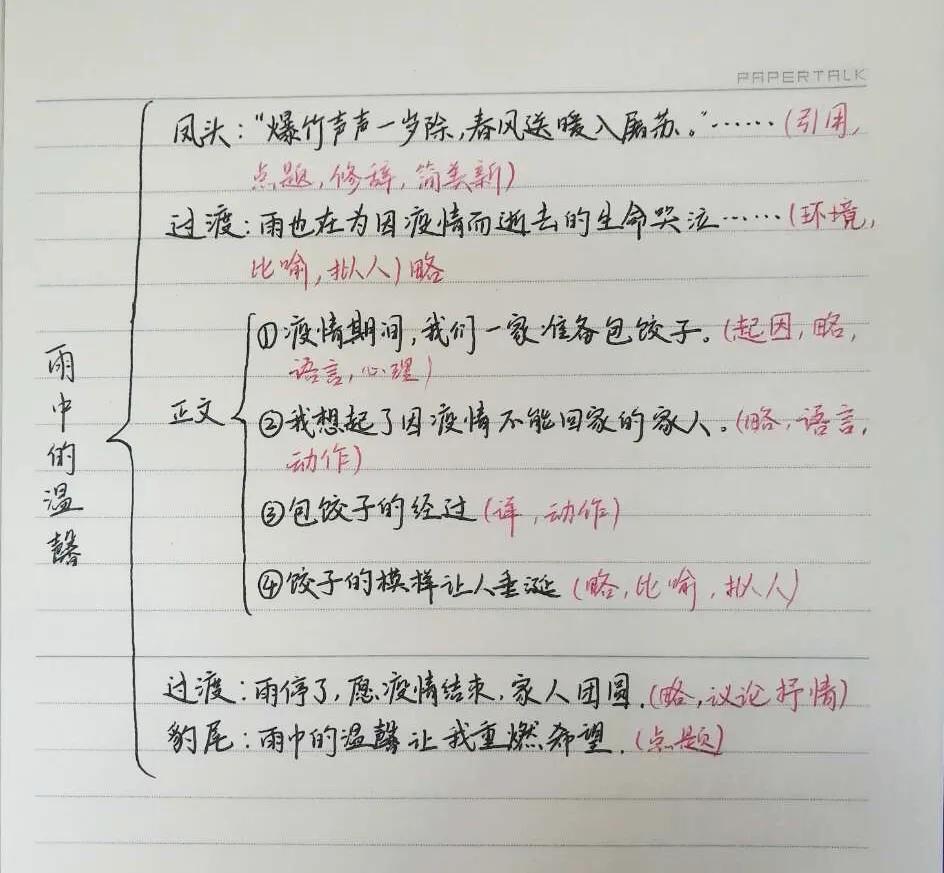 PAPERTALK
凤头："爆竹声声一岁除，春风送暖入屠苏。"……（引用，
点题，修辞，简美新）
过渡：雨也在为因疫情而逝去的生命哭泣……（环境，
比喻，拟人）略
①疫情期间，我们一家准备包饺子。（起因，略，
语言，心理）
雨中的温馨
正文
②我想起了因疫情不能回家的家人。（略，语言，
动作）
③包饺子的经过（详，动作）
④饺子的模样让人垂涎（略，比喻，拟人）
过渡：雨停了，愿疫情结束，家人团圆.（略，议论抒情）
豹尾：雨中的温馨让我重燃希望.（点题）